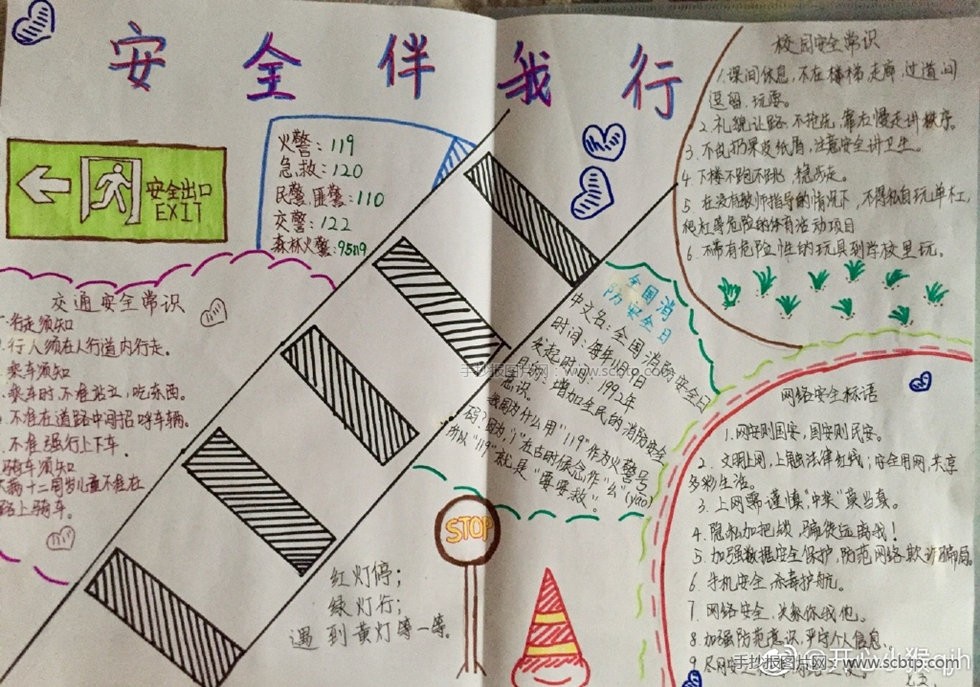 安全伴我行
安全出口
EXIT
火警:119
急救:120
民警、匪警:110
交警:122
森林火警:95119
校园安全常识
1.课间休息,不在楼梯、走廊、过道间
逗留、玩耍。
2.礼貌让路,不抢先,靠右慢走讲秩序。
3.不乱扔果皮纸屑,注意安全讲卫生。
4.下楼不跑不跳,稳步走。
5.在没有教师指导的情况下,不得私自玩单杠,
爬杠等危险的体育活动项目
6.不带有危险性的玩具到学校里玩。
交通安全常识
行走须知
行人须在人行道内行走。
乘车须知
乘车时,不准站立,吃东西。
不准在道路中间招呼车辆。
不准强行上下车。
骑车须知
未满十二周岁儿童不准在
路上骑车。
全国消
防安全日
中文名:全国消防安全日
时间:每年11月9日
发起时间:1992年
目的:增加全民的消防安全
意识。
我国为什么用"119"作为火警号
码?因为,"1"在古时候念作"幺"(yāo)
所以"119"就是"要要救"。
网络安全标语
1.网安则国安,国安则民安。
2.文明上网,上
法律红线;安全用网,共享
多彩生活。
3.上网需谨慎"中奖"莫当真。
4.隐私加把锁,骗徒远离我!
5.加强数据安全保护,防范网络欺诈骗局。
6.手机安全,杀毒护航。
7.网络安全,关系你我他。
8.加强防范意识,
个人信息。
9
STOP
红灯停;
绿灯行;
遇到黄灯等一等。
手抄报图片网:www.scbtp.com
@开心小猴qjh
手抄报图片网:www.scbtp.com